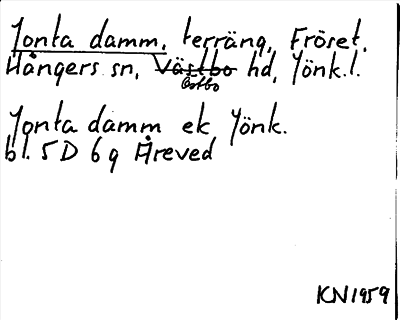 Jonta damm, terräng, Fröset,
Hångers sn, Västbo hd, Jönk.l.
Östbo
Jonta damm ek Jönk.
bl. 5D 6g Åreved
KN1959